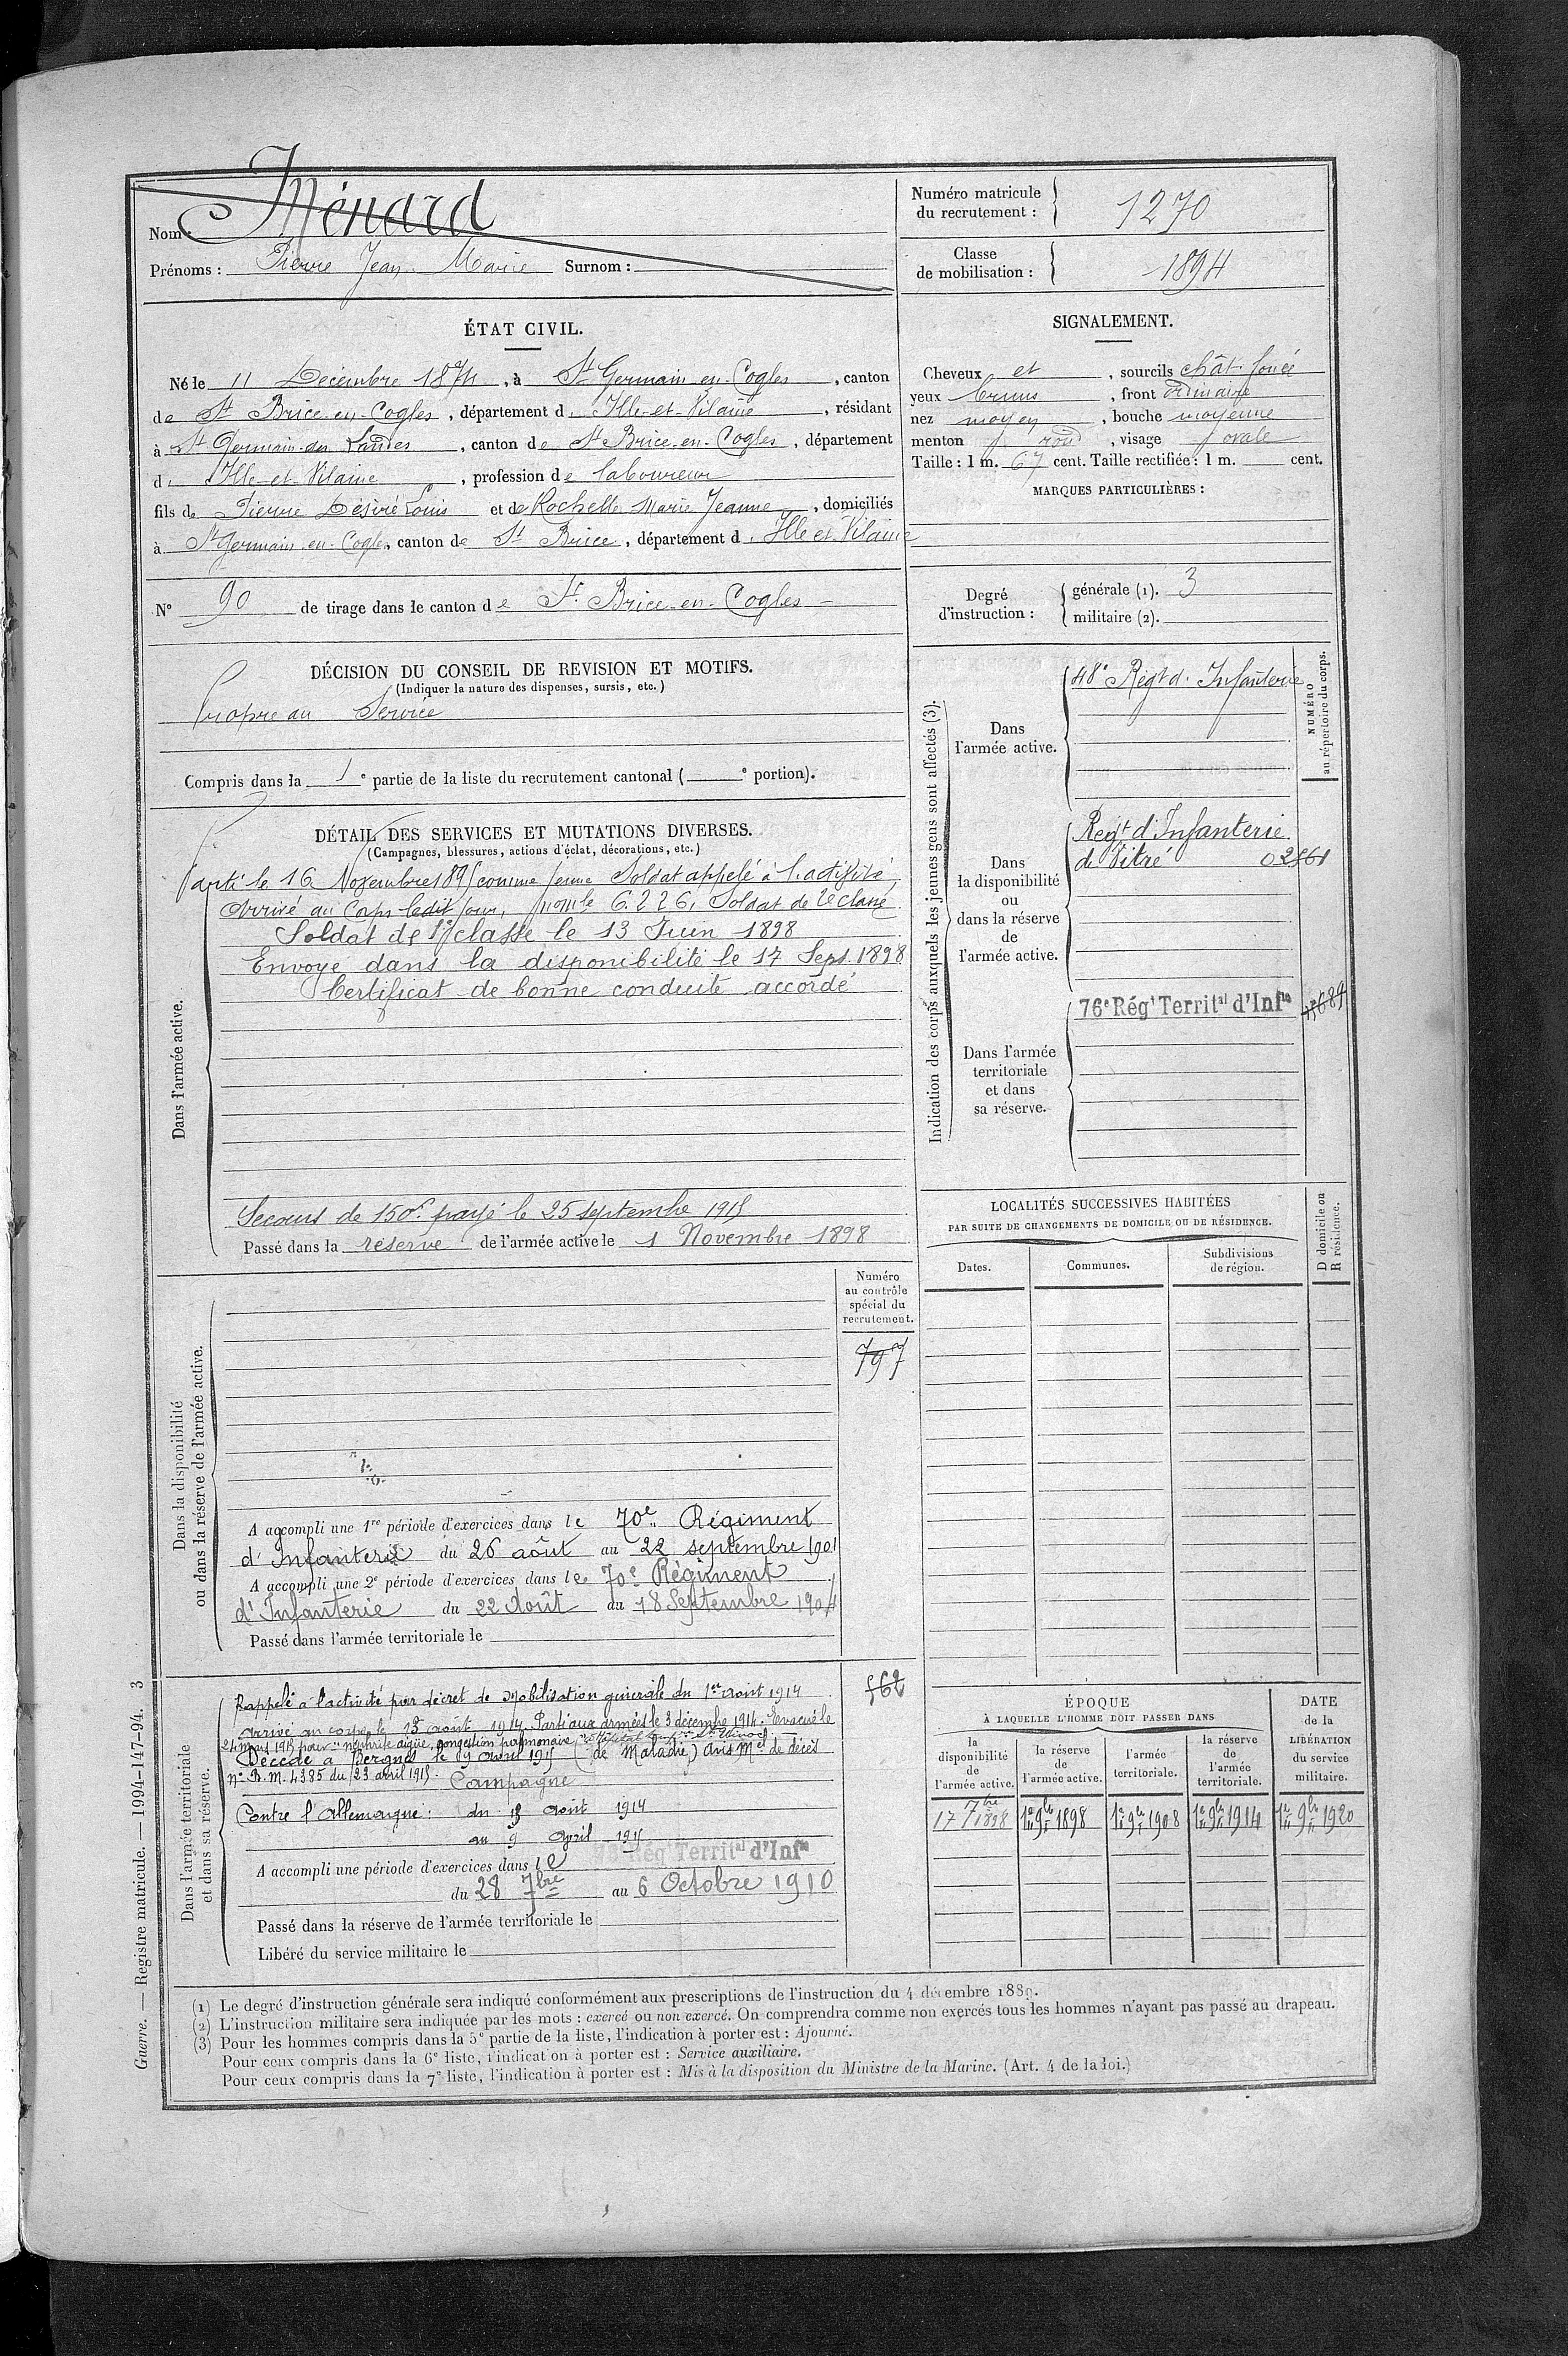 Nom : Ménard
Prénoms : Pierre Jean Marie Surnom :
Numéro matricule du recrutement : 1270
Classe de mobilisation : 1894
ÉTAT CIVIL.
Né le 11 Décembre 1874, à St Germain-en-Cogles, canton
de St Brice-en-Cogles, département d. Ille-et-Vilaine, résidant
à St Germain-en-Landes, canton de St Brice-en-Cogles, département
d. Ille-et-Vilaine, profession de laboureur
fils de Pierre Désiré Louis et de Rochelle Marie Jeanne, domiciliés
à St Germain-en-Cogles, canton de St Brice, département d. Ille et Vilaine
N° 90 de tirage dans le canton de St Brice-en-Cogles
SIGNALEMENT.
Cheveux et, sourcils chât. foncé
yeux bruns, front ordinaire
nez moyen, bouche moyenne
menton rond, visage ovale
Taille : 1 m. 67 cent. Taille rectifiée : 1 m. cent.
MARQUES PARTICULIÈRES :
Degré d'instruction : générale (1). 3
militaire (2).
DÉCISION DU CONSEIL DE REVISION ET MOTIFS.
(Indiquer la nature des dispenses, sursis, etc.)
Propre au Service
Compris dans la 1e partie de la liste du recrutement cantonal ( e portion).
DÉTAIL DES SERVICES ET MUTATIONS DIVERSES.
(Campagnes, blessures, actions d'éclat, décorations, etc.)
Dans l'armée active.
Parti le 16 Novembre 189 comme jeune Soldat appelé à l'activité
Arrivé au Corps ledit jour, 6226, Soldat de 2e classe.
Soldat de 1e classe le 13 Juin 1898
Envoyé dans la disponibilité le 17 Sept. 1898
Certificat de bonne conduite accordé
Secours de 150f. payé le 25 septembre 1915
Passé dans la réserve de l'armée active le 1 Novembre 1898
Indication des corps auxquels les jeunes gens sont affectés (3).
NUMÉRO au répertoire du corps.
Dans l'armée active.
48e Régt d. Infanterie
Dans la disponibilité ou dans la réserve de l'armée active.
Regt d'Infanterie
de Vitré 02561
Dans l'armée territoriale et dans sa réserve.
76e Régt Territal d'Infie
LOCALITÉS SUCCESSIVES HABITÉES
PAR SUITE DE CHANGEMENTS DE DOMICILE OU DE RÉSIDENCE.
D domicile ou R résidence.
Dates. Communes. Subdivisions de région.
Dans la disponibilité ou dans la réserve de l'armée active.
Numéro au contrôle spécial du recrutement.
797
A accompli une 1re période d'exercices dans le 70e Régiment
d'Infanterie du 26 août au 22 septembre 1901
A accompli une 2e période d'exercices dans le 70e Régiment
d'Infanterie du 22 Août au 18 Septembre 1904
Passé dans l'armée territoriale le
Dans l'armée territoriale et dans sa réserve.
562
Rappelé à l'activité par décret de Mobilisation générale du 1er Août 1914
Arrivé au corps le 13 août 1914. Parti aux armées le 3 décembre 1914. Evacué le
24 mars 1915 pour "néphrite aigüe, congestion pulmonaire"
Décédé à Bergues le 9 avril 1915 (de Maladie) avis Mel de décès
n° B.M. 4385 du 23 avril 1915. Campagne
Contre l'Allemagne : du 13 août 1914
au 9 Avril 1915
A accompli une période d'exercices dans le Rég Territal d'Infie
du 28 7bre au 6 Octobre 1910
Passé dans la réserve de l'armée territoriale le
Libéré du service militaire le
ÉPOQUE
À LAQUELLE L'HOMME DOIT PASSER DANS
la disponibilité de l'armée active.
la réserve de l'armée active.
l'armée territoriale.
la réserve de l'armée territoriale.
DATE de la LIBÉRATION du service militaire.
17 7bre 1898 1er 9bre 1898 1er 9bre 1908 1er 9bre 1914 1er 9bre 1920
(1) Le degré d'instruction générale sera indiqué conformément aux prescriptions de l'instruction du 4 décembre 1889.
(2) L'instruction militaire sera indiquée par les mots : exercé ou non exercé. On comprendra comme non exercés tous les hommes n'ayant pas passé au drapeau.
(3) Pour les hommes compris dans la 5e partie de la liste, l'indication à porter est : Ajourné.
Pour ceux compris dans la 6e liste, l'indication à porter est : Service auxiliaire.
Pour ceux compris dans la 7e liste, l'indication à porter est : Mis à la disposition du Ministre de la Marine. (Art. 4 de la loi.)
Guerre. — Registre matricule. — 1994-147-94. 3